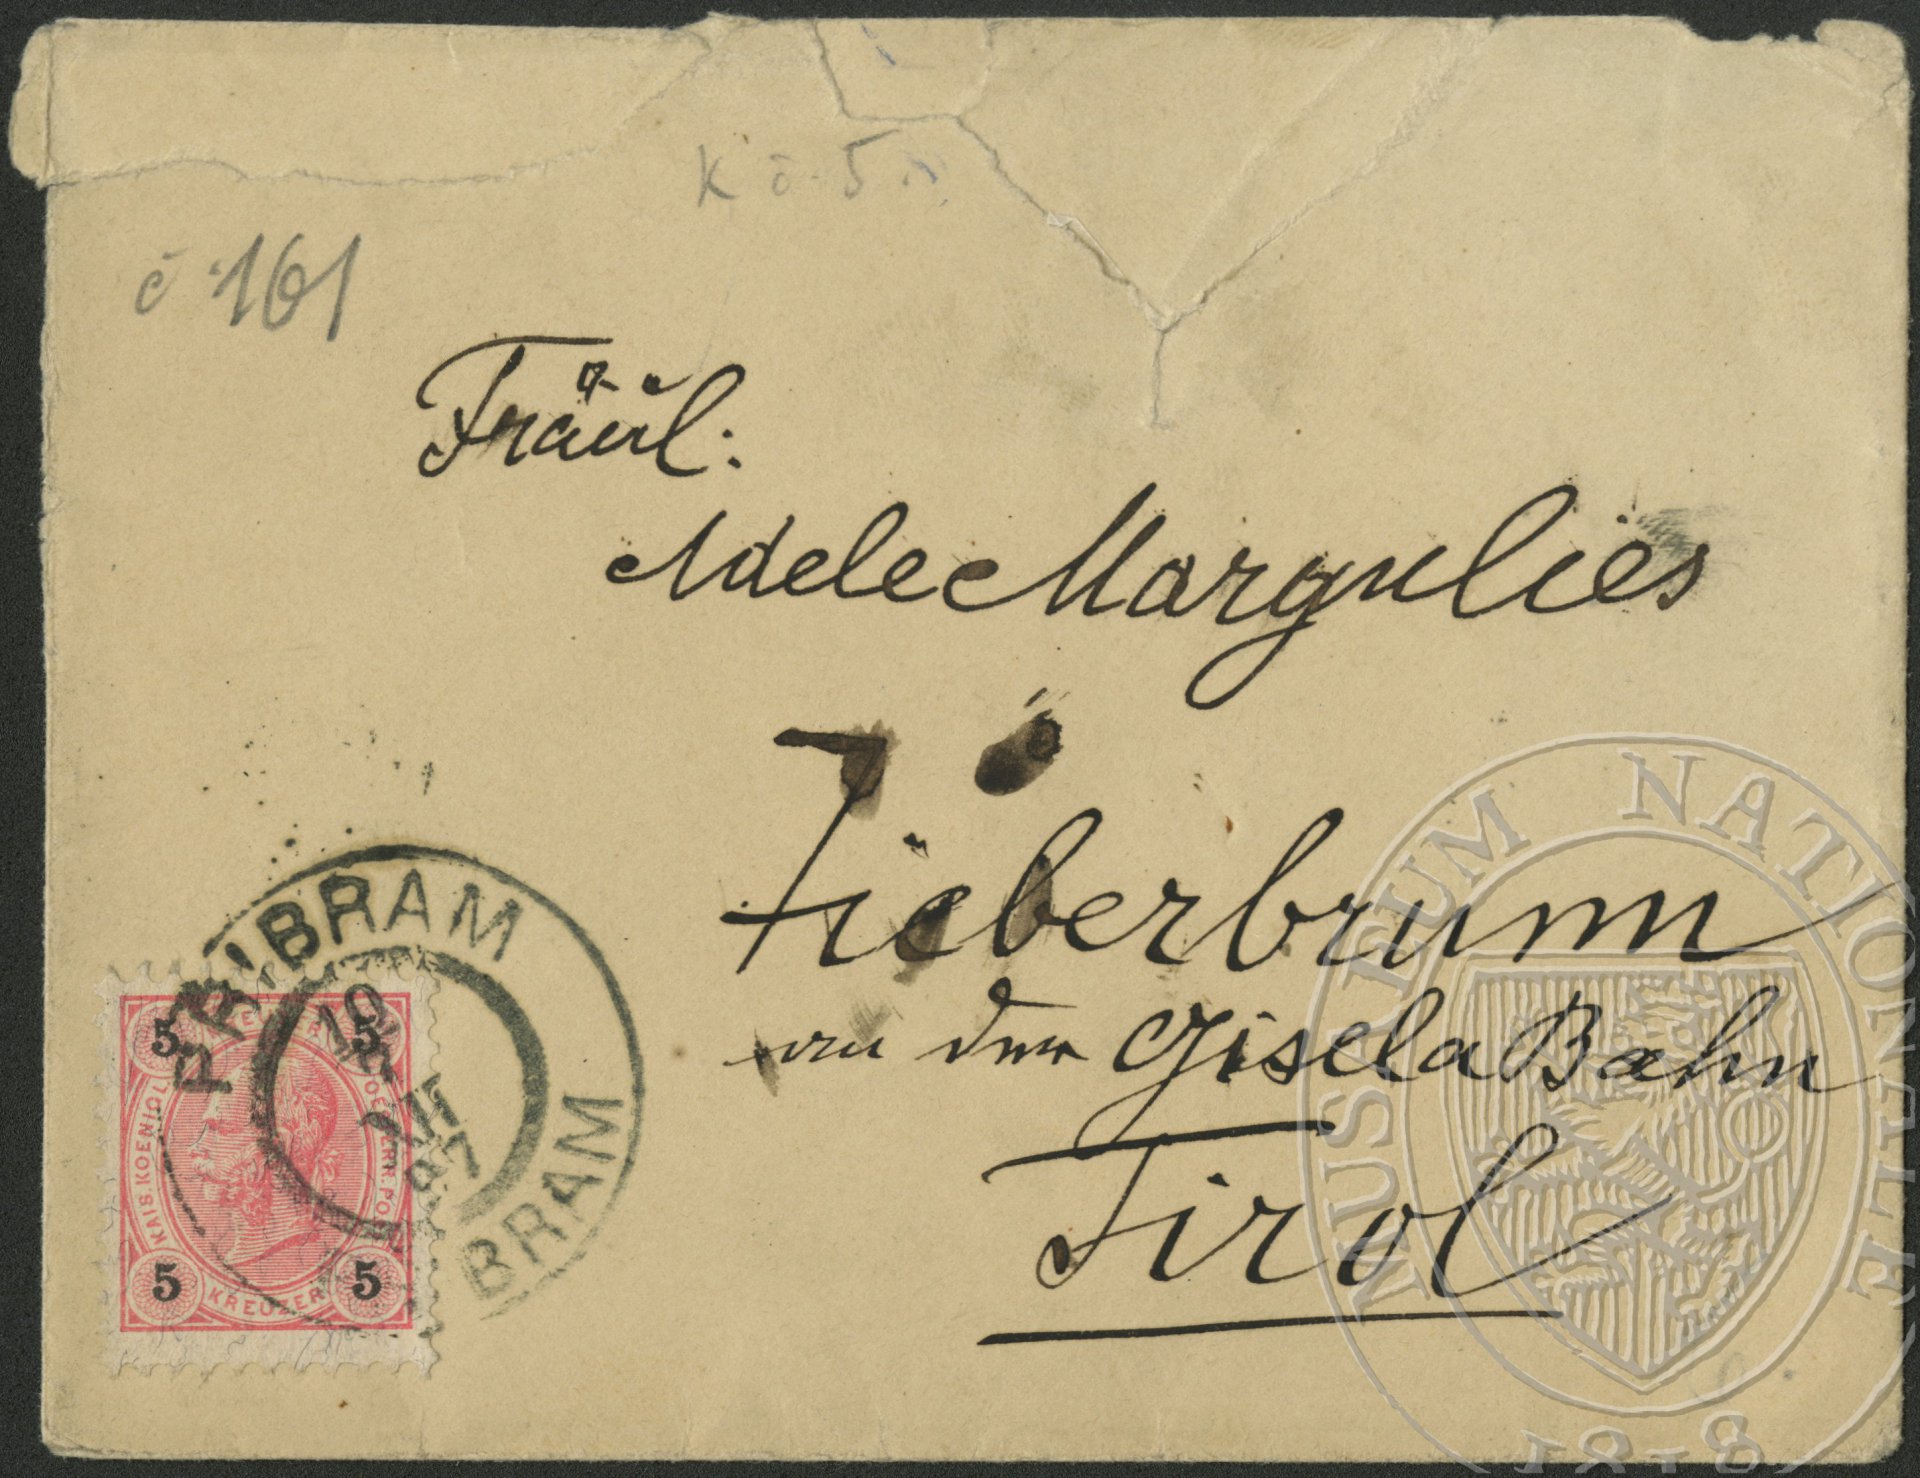 K č. 5
č. 161
Fräul.
Adele Margulies
Fieberbrunn
an der Gisela Bahn
Tirol
PŘIBRAM
PŘIBRAM
97
5 5
KAIS. KOENIGL.
5 KREUZER 5
MUSEUM NATIONALE
1818